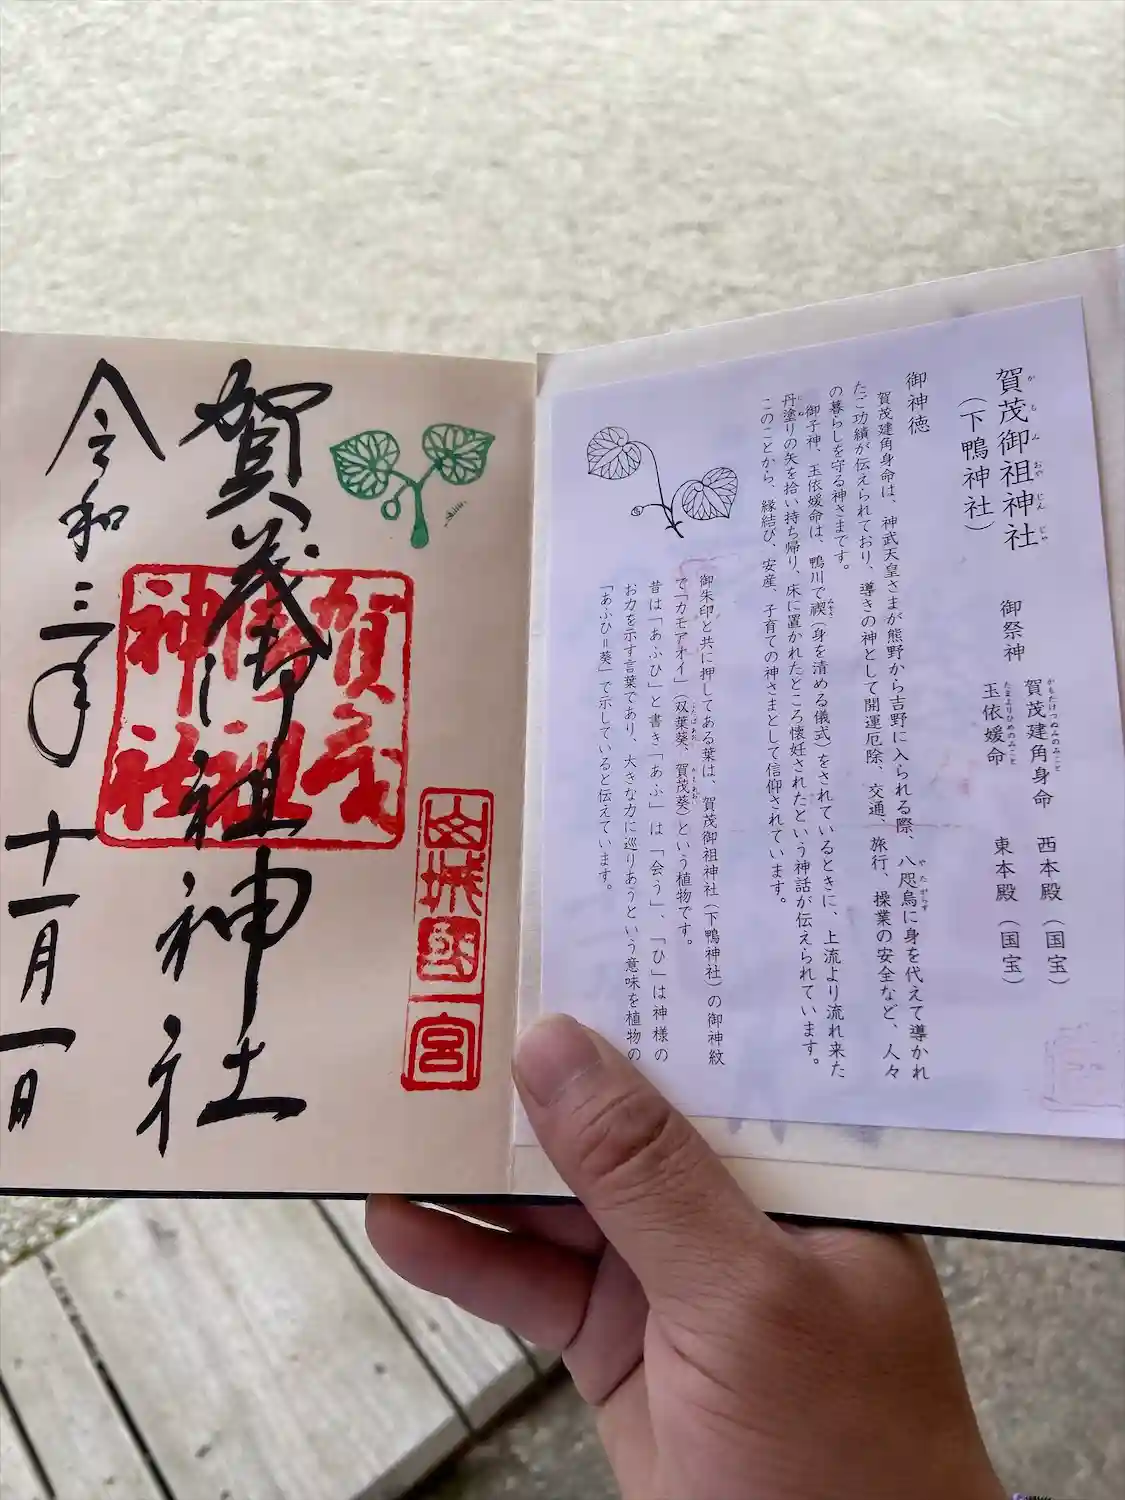 賀茂御祖神社
かもみおやじんじゃ
(下鴨神社)
御祭神
賀茂建角身命
かもたけつぬみのみこと
西本殿(国宝)
玉依媛命
たまよりひめのみこと
東本殿(国宝)
御神徳
賀茂建角身命は、神武天皇さまが熊野から吉野に入られる際、八咫烏に身を代えて導かれ
やたがらす
たご功績が伝えられており、導きの神として開運厄除、交通、旅行、操業の安全など、人々
の暮らしを守る神さまです。
御子神、玉依媛命は、鴨川で禊(身を清める儀式)をされているときに、上流より流れ来た
みそぎ
丹塗りの矢を拾い持ち帰り、床に置かれたところ懐妊されたという神話が伝えられています。
にぬ
このことから、縁結び、安産、子育ての神さまとして信仰されています。
御朱印と共に押してある葉は、賀茂御祖神社(下鴨神社)の御神紋
で「カモアオイ」(双葉葵、賀茂葵)という植物です。
ふたばあおい
かもあおい
昔は「あふひ」と書き「あふ」は「会う」、「ひ」は神様の
お力を示す言葉であり、大きな力に巡りあうという意味を植物の
「あふひ=葵」で示していると伝えています。
山城國一宮
賀茂御祖神社
賀茂御祖神社
令和三年十一月一日